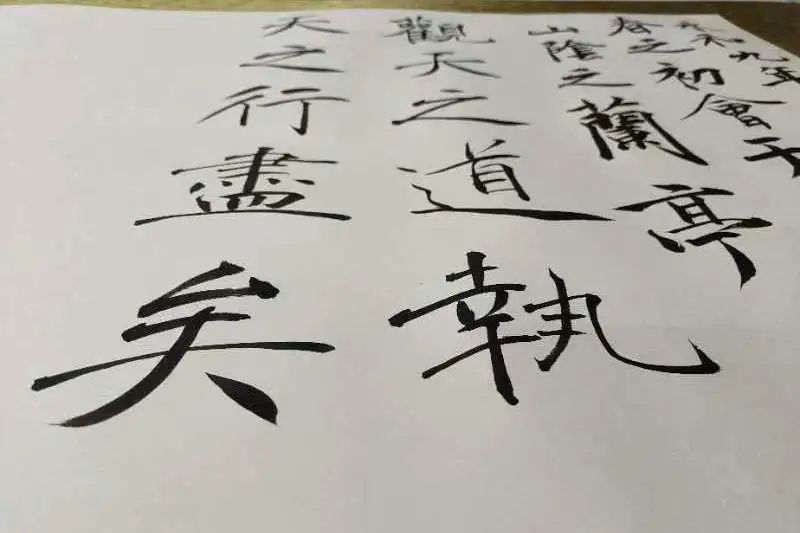 永和九年
春之初會于
山陰之蘭亭
觀天之道執
天之行盡矣